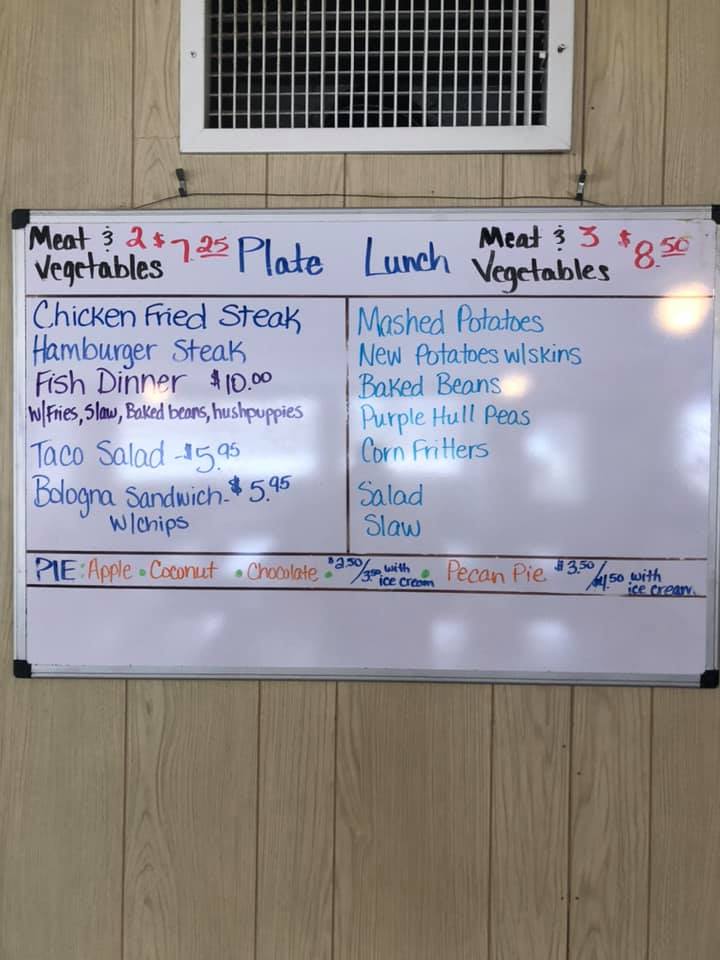 Meat & 2 $7.25 Plate Lunch Meat & 3 $8.50
Vegetables Vegetables
Chicken Fried Steak
Hamburger Steak
Fish Dinner $10.00
w/Fries, Slaw, Baked beans, hushpuppies
Taco Salad - $5.95
Bologna Sandwich - $5.95
w/chips
Mashed Potatoes
New Potatoes w/skins
Baked Beans
Purple Hull Peas
Corn Fritters
Salad
Slaw
PIE: Apple • Coconut • Chocolate • $2.50/3.50 with ice cream • Pecan Pie $3.50/$4.50 with ice cream